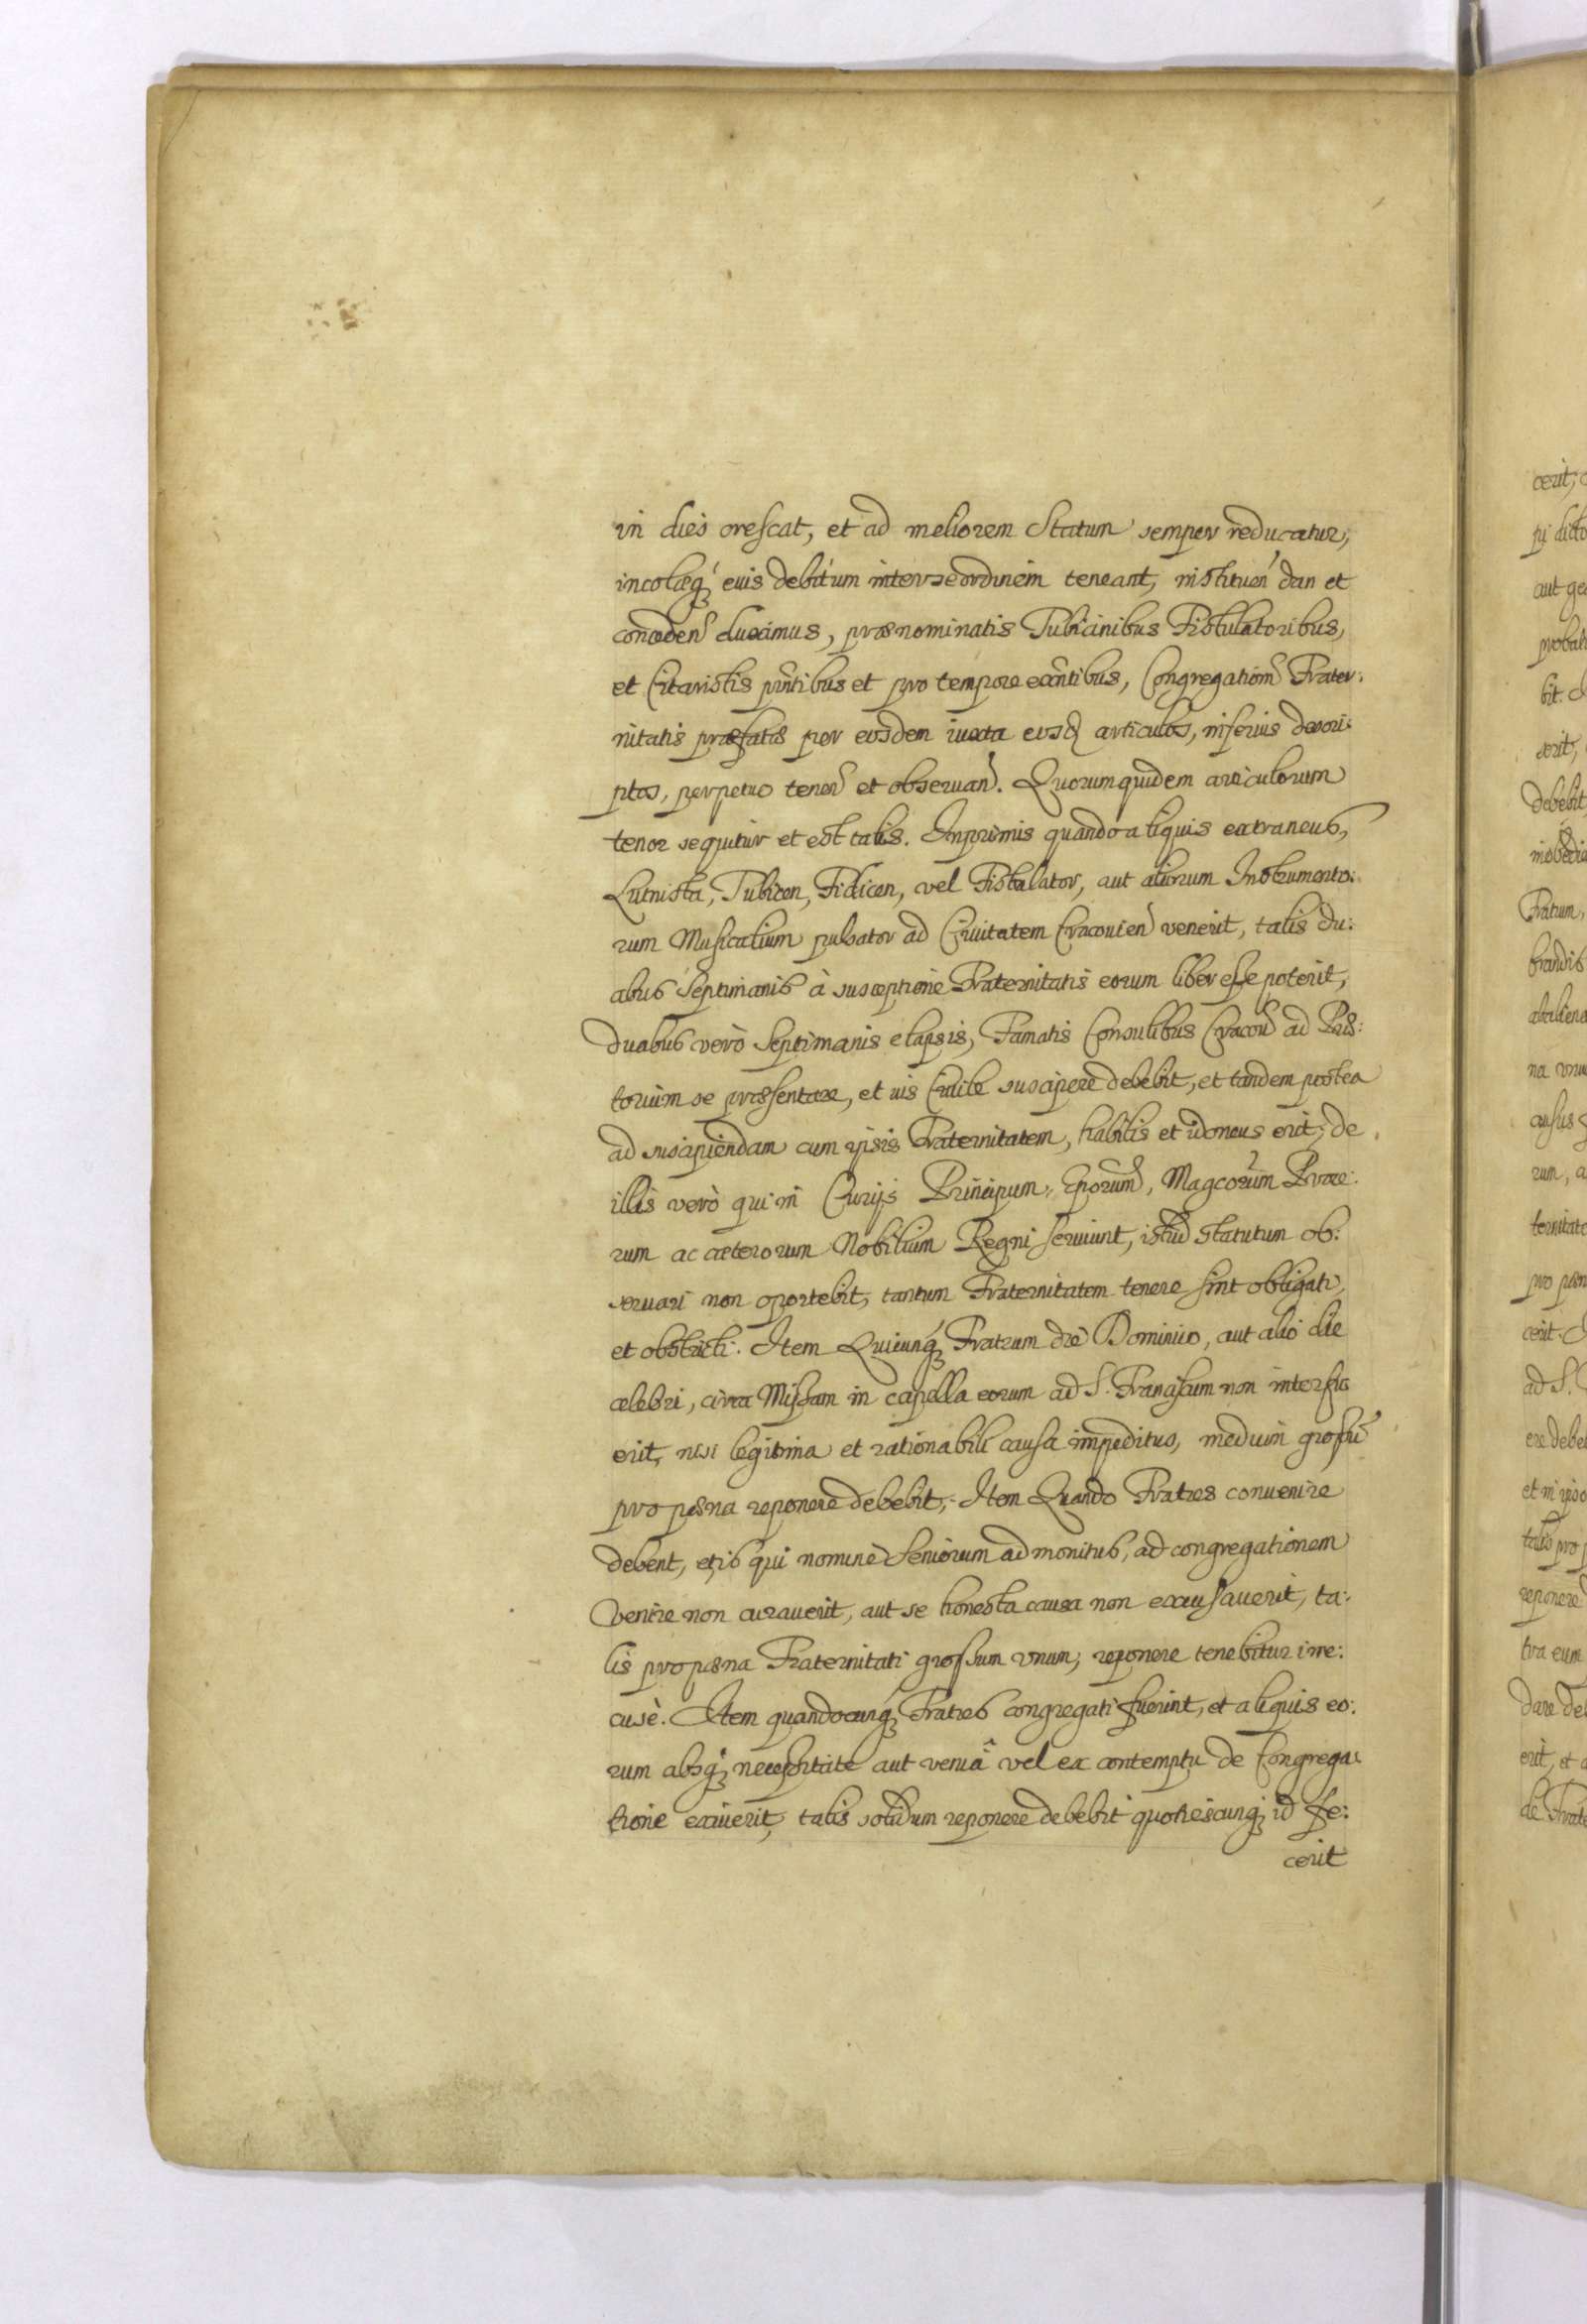 in dies crescat, et ad meliorem Statum semper reducatur,
incolæq́ꝫ eius debitum inter se ordinem teneant, instituen̄dan et
conceden̄ duximus, prænominatis Tubicinibus Fistulatoribus,
et Citaristis pn̄tibus et pro tempore exn̄tibus, Congregatiom̄ Frater:
nitatis præfatis per eosdem iuxta eosq̄ articulos, inferius descri:
ptos, perpetuo tenen̄ et obseruan̄. Quorumquidem articulorum
tenor sequitur et est talis. Inprimis quando aliquis extraneus,
Lutnista, Tubicen, Fidicen, vel Fistulator, aut aliorum Instrumento:
rum Musicalium pulsator ad Ciuitatem Cracouien̄ venerit, talis du:
abus Septimanis à susceptione Fraternitatis eorum liber esse poterit,
duabus verò Septimanis elapsis, Famatis Consulibus Cracou̅ ad Præ:
torium se præsentare, et ius Ciuile suscipere debebit, et tandem postea
ad suscipiendam cum ipsis Fraternitatem, habilis et idoneus erit; de
illis verò qui in Curijs Principum, Eporum̄, Magcorum̄ Proce:
rum ac cæterorum Nobilium Regni seruiunt, istud statutum ob:
seruari non oportebit, tantum Fraternitatem tenere sint obligati,
et obstricti. Item Quicunq́ꝫ Fratrum die Dominico, aut alio die
celebri, circa Missam in capella eorum ad S. Franciscum non interfu
erit, nisi legitima et rationabili causa impeditus, medium grossū
pro pæna reponere debebit, Item Quando Fratres conuenire
debent, et is qui nomine Seniorum admonitus, ad congregationem
venire non curauerit, aut se honesta causa non excusauerit, ta:
lis pro pæna Fraternitati grossum vnum, reponere tenebitur irre:
cusè. Item quandocunq́ꝫ Fratres congregati fuerint, et aliquis eo:
rum absq́ꝫ necessitate aut veniâ vel ex contemptu de Congrega:
tione exiuerit, talis solidum reponere debebit quotiescunq́ꝫ id fe:
cerit